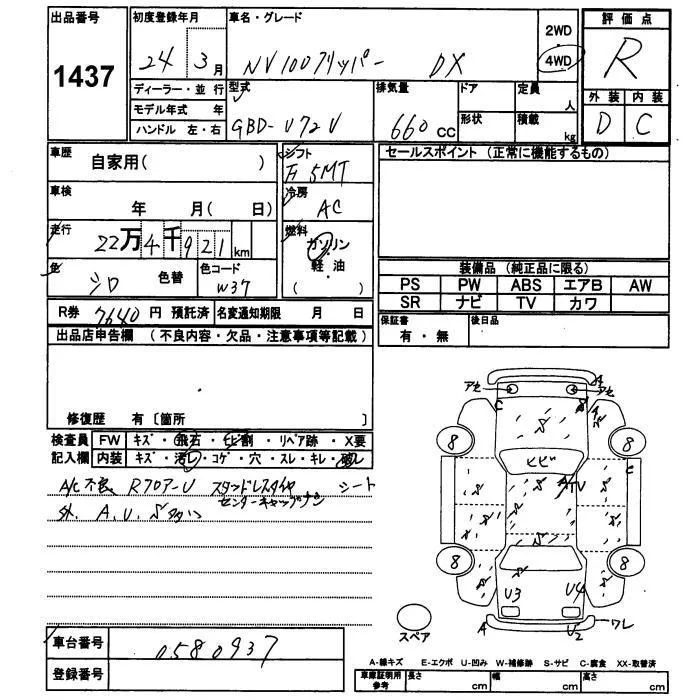 出品番号
1437
初度登録年月
24 3月
車名・グレード
NV100クリッパー DX
2WD
4WD
評価点
R
外装 内装
D C
ディーラー・並行
モデル年式 年
ハンドル 左・右
型式
GBD-U72V
排気量
660 CC
ドア
形状
定員
人
積載
kg
車歴
自家用( )
シフト
F 5MT
セールスポイント (正常に機能するもの)
車検
年 月( 日)
冷房
AC
走行
22万4千921km
燃料
ガソリン
軽油
( )
色
シロ
色替
色コード
W37
装備品 (純正品に限る)
PS PW ABS エアB AW
SR ナビ TV カワ
R券 7640円 預託済
名変通知期限 月 日
保証書
有・無
後日品
出品店申告欄 (不良内容・欠品・注意事項等記載)
修復歴 有〔箇所 〕
検査員
記入欄
FW キズ・飛石・ヒビ割・リペア跡・X要
内装 キズ・汚レ・コゲ・穴・スレ・キレ・破レ
A/C不良 RフロアーU スタッドレスタイヤ シート
センターキャップナシ
外. A. U. S多数
アセ アセ
C A
8 8
ヒビ
TV
C
8 8
U3 U4
A U2 ワレ
スペア
車台番号
0580937
登録番号
A-線キズ E-エクボ U-凹み W-補修跡 S-サビ C-腐食 XX-取替済
車庫証明用
参考
長さ cm 幅 cm 高さ cm